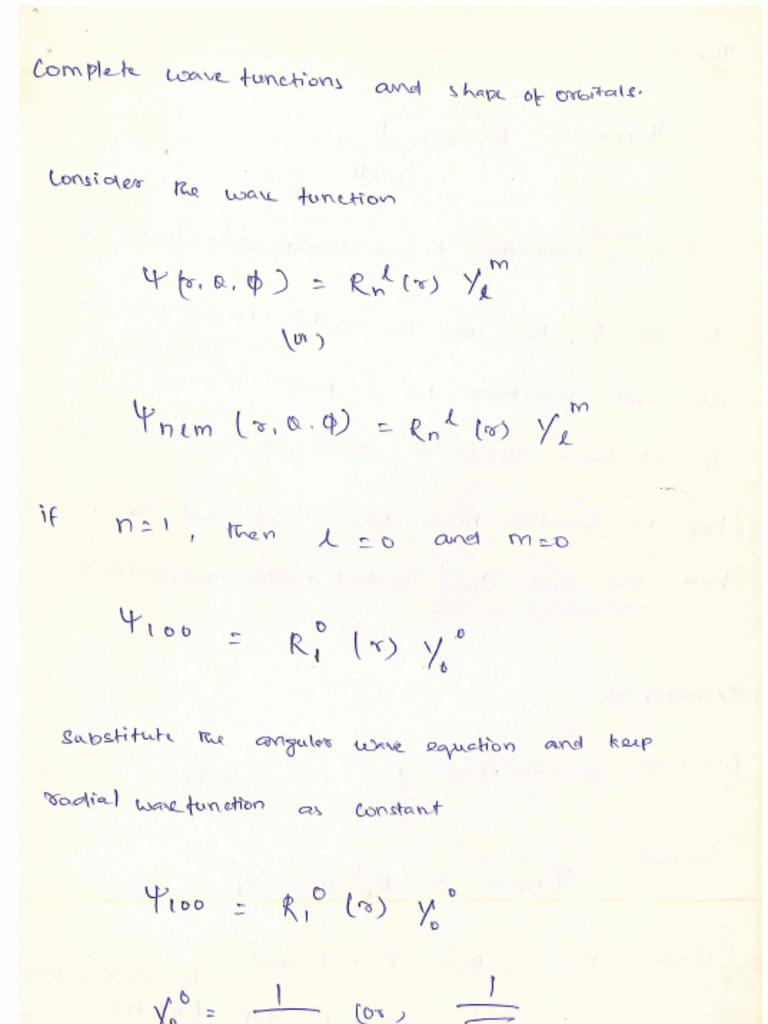 Complete wave functions and shape of orbitals.
Consider the wave function
Ψ(r, θ, φ) = Rₙˡ(r) Yₗᵐ
(or)
Ψₙₗₘ (r, θ. φ) = Rₙˡ (r) Yₗᵐ
if n=1, then l=0 and m=0
Ψ₁₀₀ = R₁⁰ (r) Y₀⁰
Substitute the angular wave equation and keep
radial wavefunction as constant
Ψ₁₀₀ = R₁⁰ (r) Y₀⁰
Y₀⁰ = 1 (or) 1